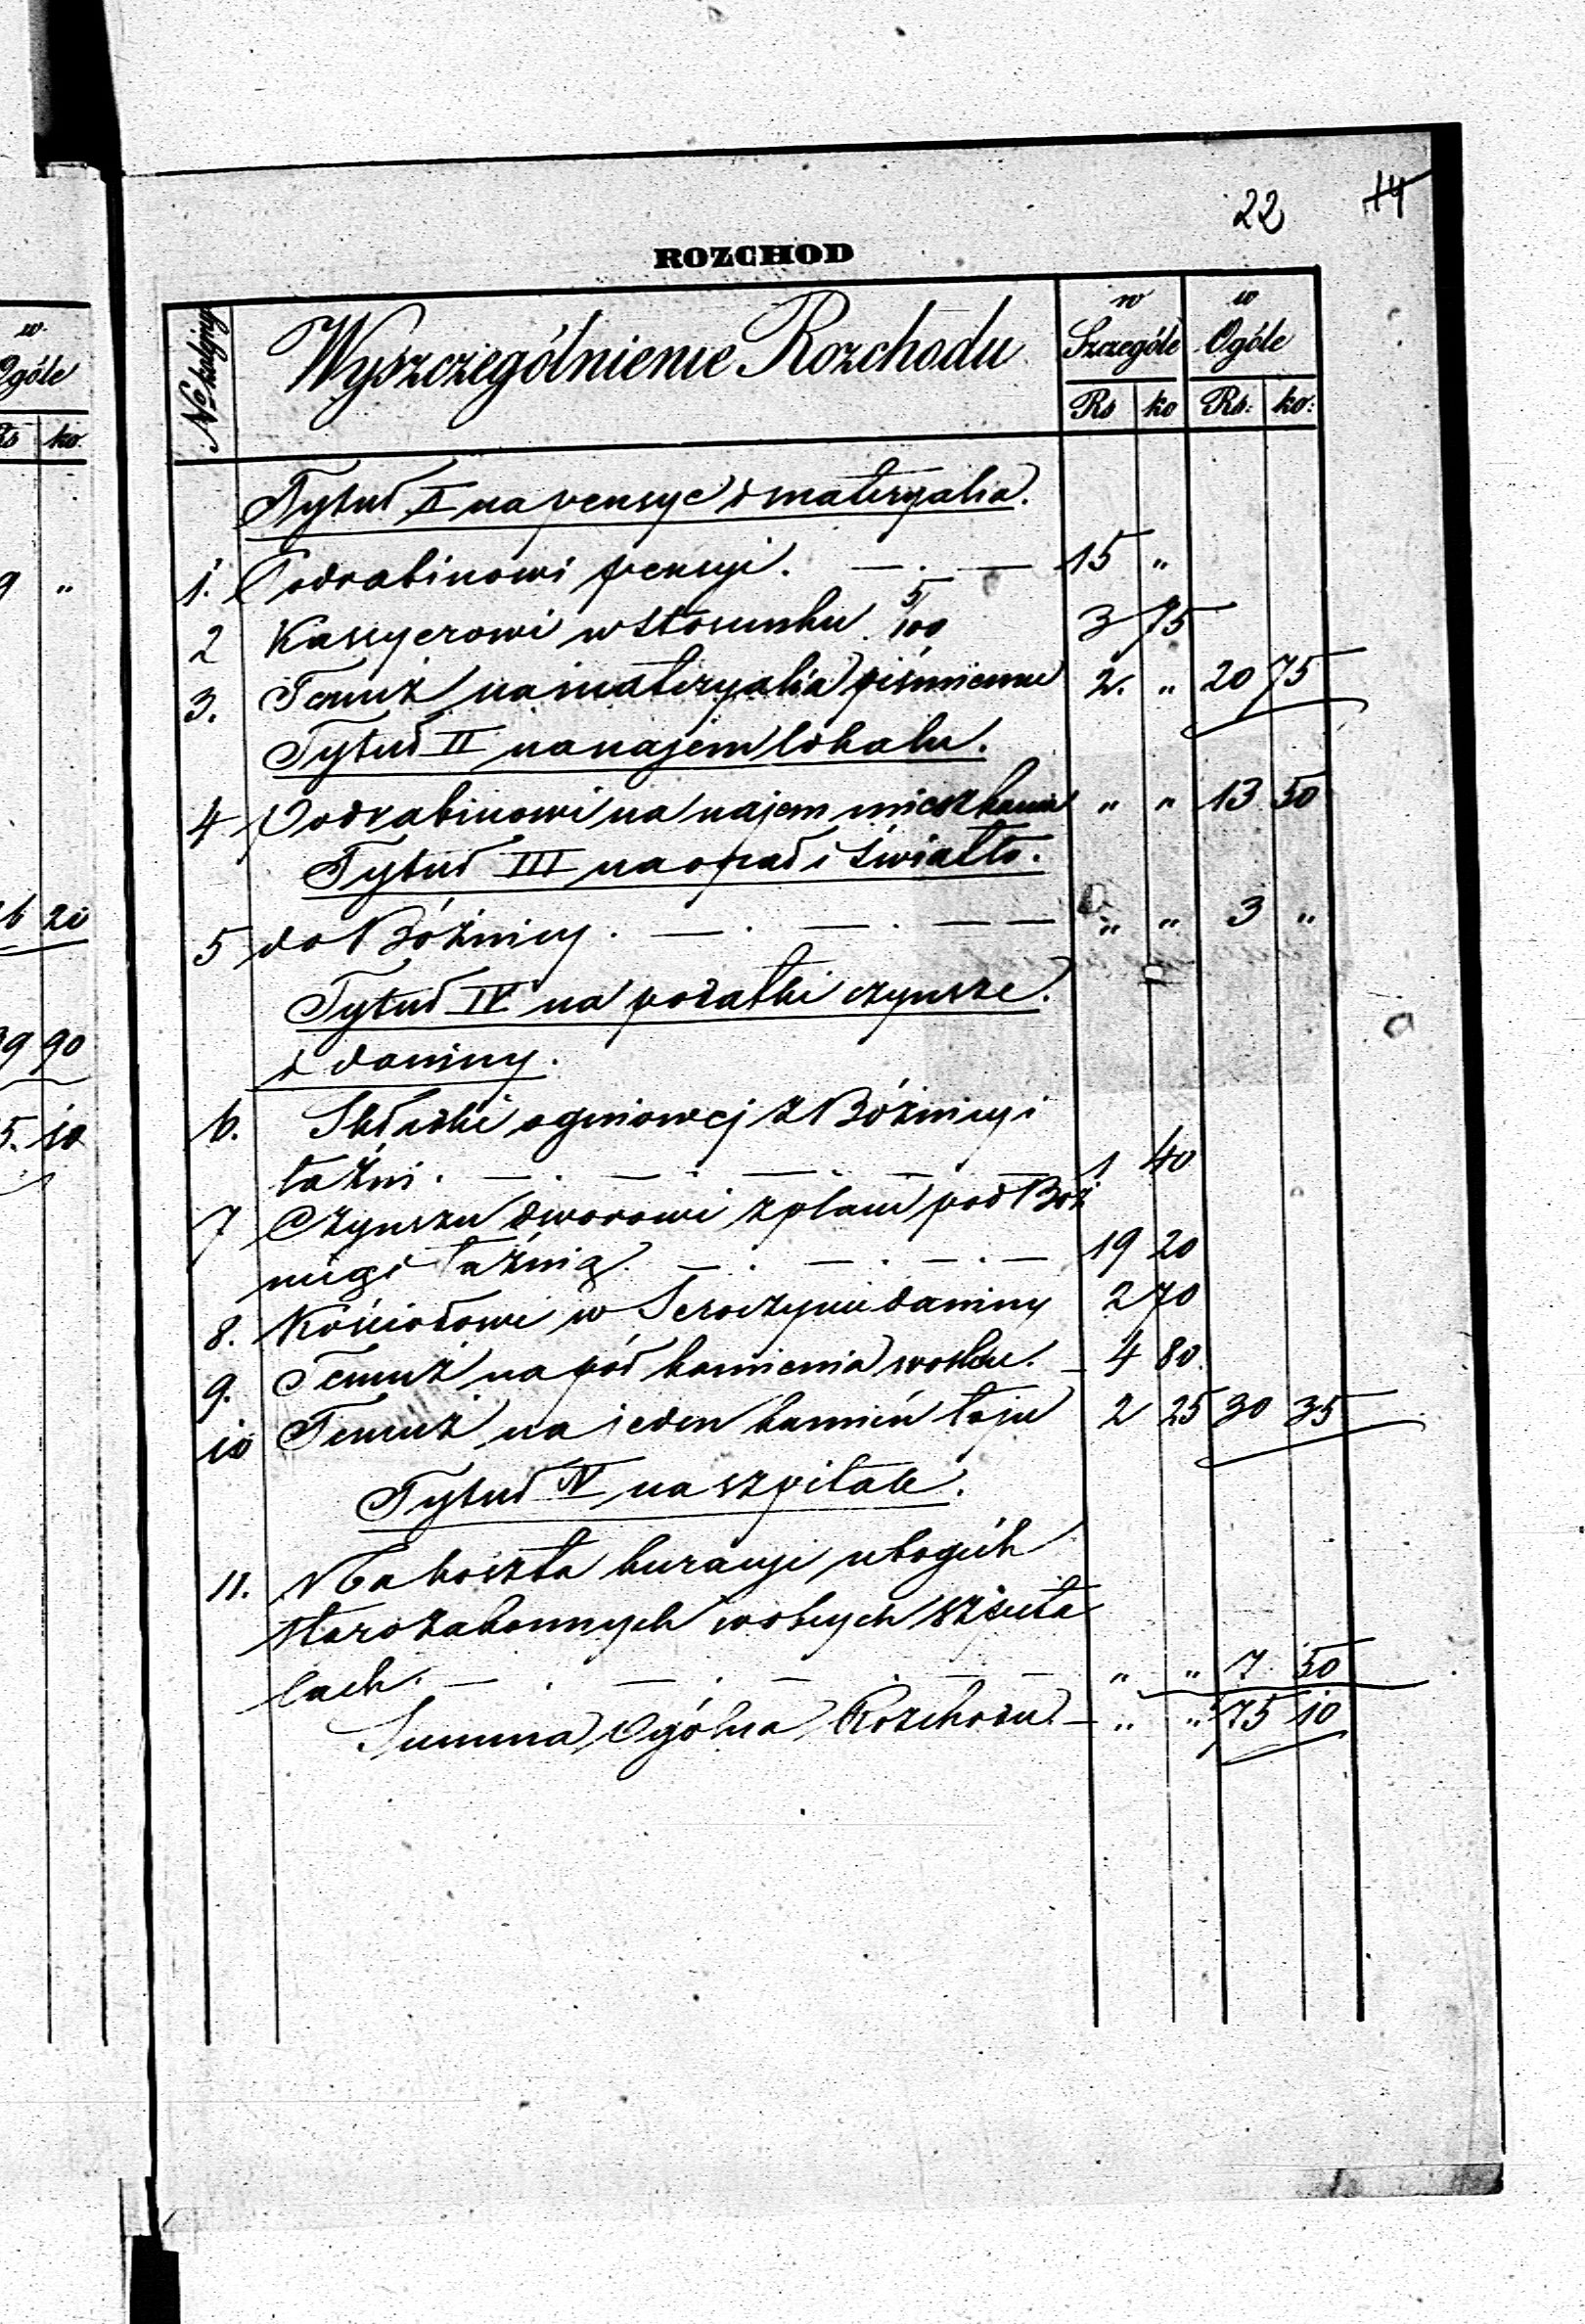 22 14
ROZCHOD
No kolejny
Wyszczególnienie Rozchodu
w Szczególe
w Ogóle
Rs ko Rs: ko:
Tytuł I na pensye i materyalia.
1. Podrabinowi pensyi. — . — 15 „
2 Kassyerowi w stosunku 5/100 3 75
3. Temuż na materyalia piśmienne 2. „ 20 75
Tytuł II na najem lokalu.
4 Podrabinowi na najem mieszkania „ „ 13 50
Tytuł III na opał i światło.
5 do Bóżnicy. — . — . — — „ „ 3 „
Tytuł IV na podatki czynsze
i daniny.
6. Składki ogniowej z Bóżnicy i
łaźni. — . — . — . — — 1 40
7 Czynszu dworowi z placu pod Boż
nicą i łaźnią. — . — . — . — 19 20
8. Kościołowi w Seroczynie daniny 2 70
9. Temuż na pół kamienia wosku. — 4 80.
10 Temuż na jeden kamień łoju 2 25 30 35
Tytuł V na szpitale.
11. Na koszta kuracyi ubogich
starozakonnych w obcych szpita
lach. — . — . — . — — „ „ 7 50
Summa Ogólna Rozchodu — „ „ 75 10
w.
Ogóle
Rs ko.
9 „
20
90
5. 10